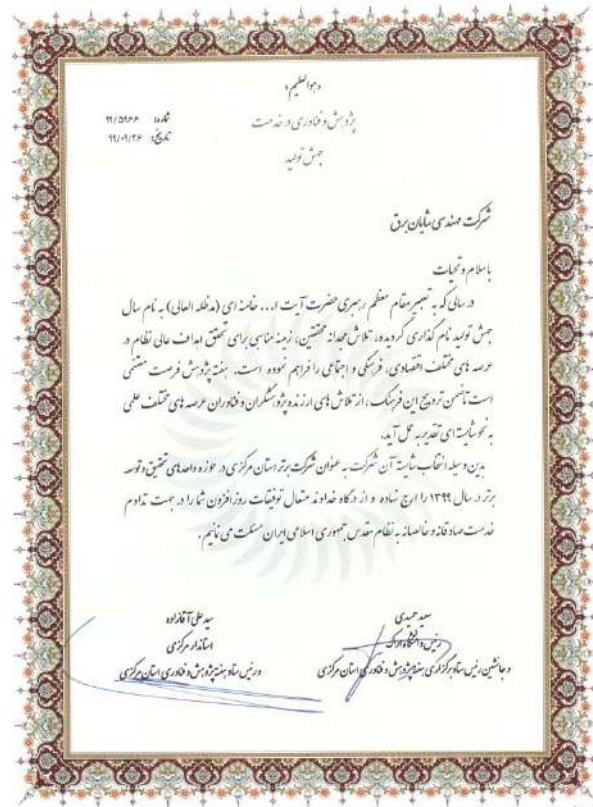 «هوالعلیم»
پژوهش و فناوری در خدمت
جهش تولید
شماره: ۹۹/۵۹۶۶
تاریخ: ۹۹/۰۹/۲۶
شرکت مهندسی شایان برق
با سلام و تحیات
در سالی که به تعبیر مقام معظم رهبری حضرت آیت ا... خامنه ای (مدظله العالی) به نام سال
جهش تولید نام گذاری گردیده، تلاش مجدانه محققین، زمینه مناسبی برای تحقق اهداف عالی نظام در
عرصه های مختلف اقتصادی، فرهنگی و اجتماعی را فراهم نموده است. هفته پژوهش فرصت مغتنمی
است تا ضمن ترویج این فرهنگ، از تلاش های ارزنده پژوهشگران و فناوران عرصه های مختلف علمی
به نحو شایسته ای تقدیر به عمل آید.
بدین وسیله انتخاب شایسته آن شرکت به عنوان شرکت برتر استان مرکزی در حوزه واحدهای تحقیق و توسعه
برتر در سال ۱۳۹۹ را ارج نهاده و از درگاه خداوند متعال توفیقات روزافزون شما را در جهت تداوم
خدمت صادقانه و خالصانه به نظام مقدس جمهوری اسلامی ایران مسئلت می نمائیم.
سعید حمیدی
رئیس دانشگاه اراک
و جانشین رئیس ستاد برگزاری هفته پژوهش و فناوری استان مرکزی
سید علی آقازاده
استاندار مرکزی
و رئیس ستاد هفته پژوهش و فناوری استان مرکزی